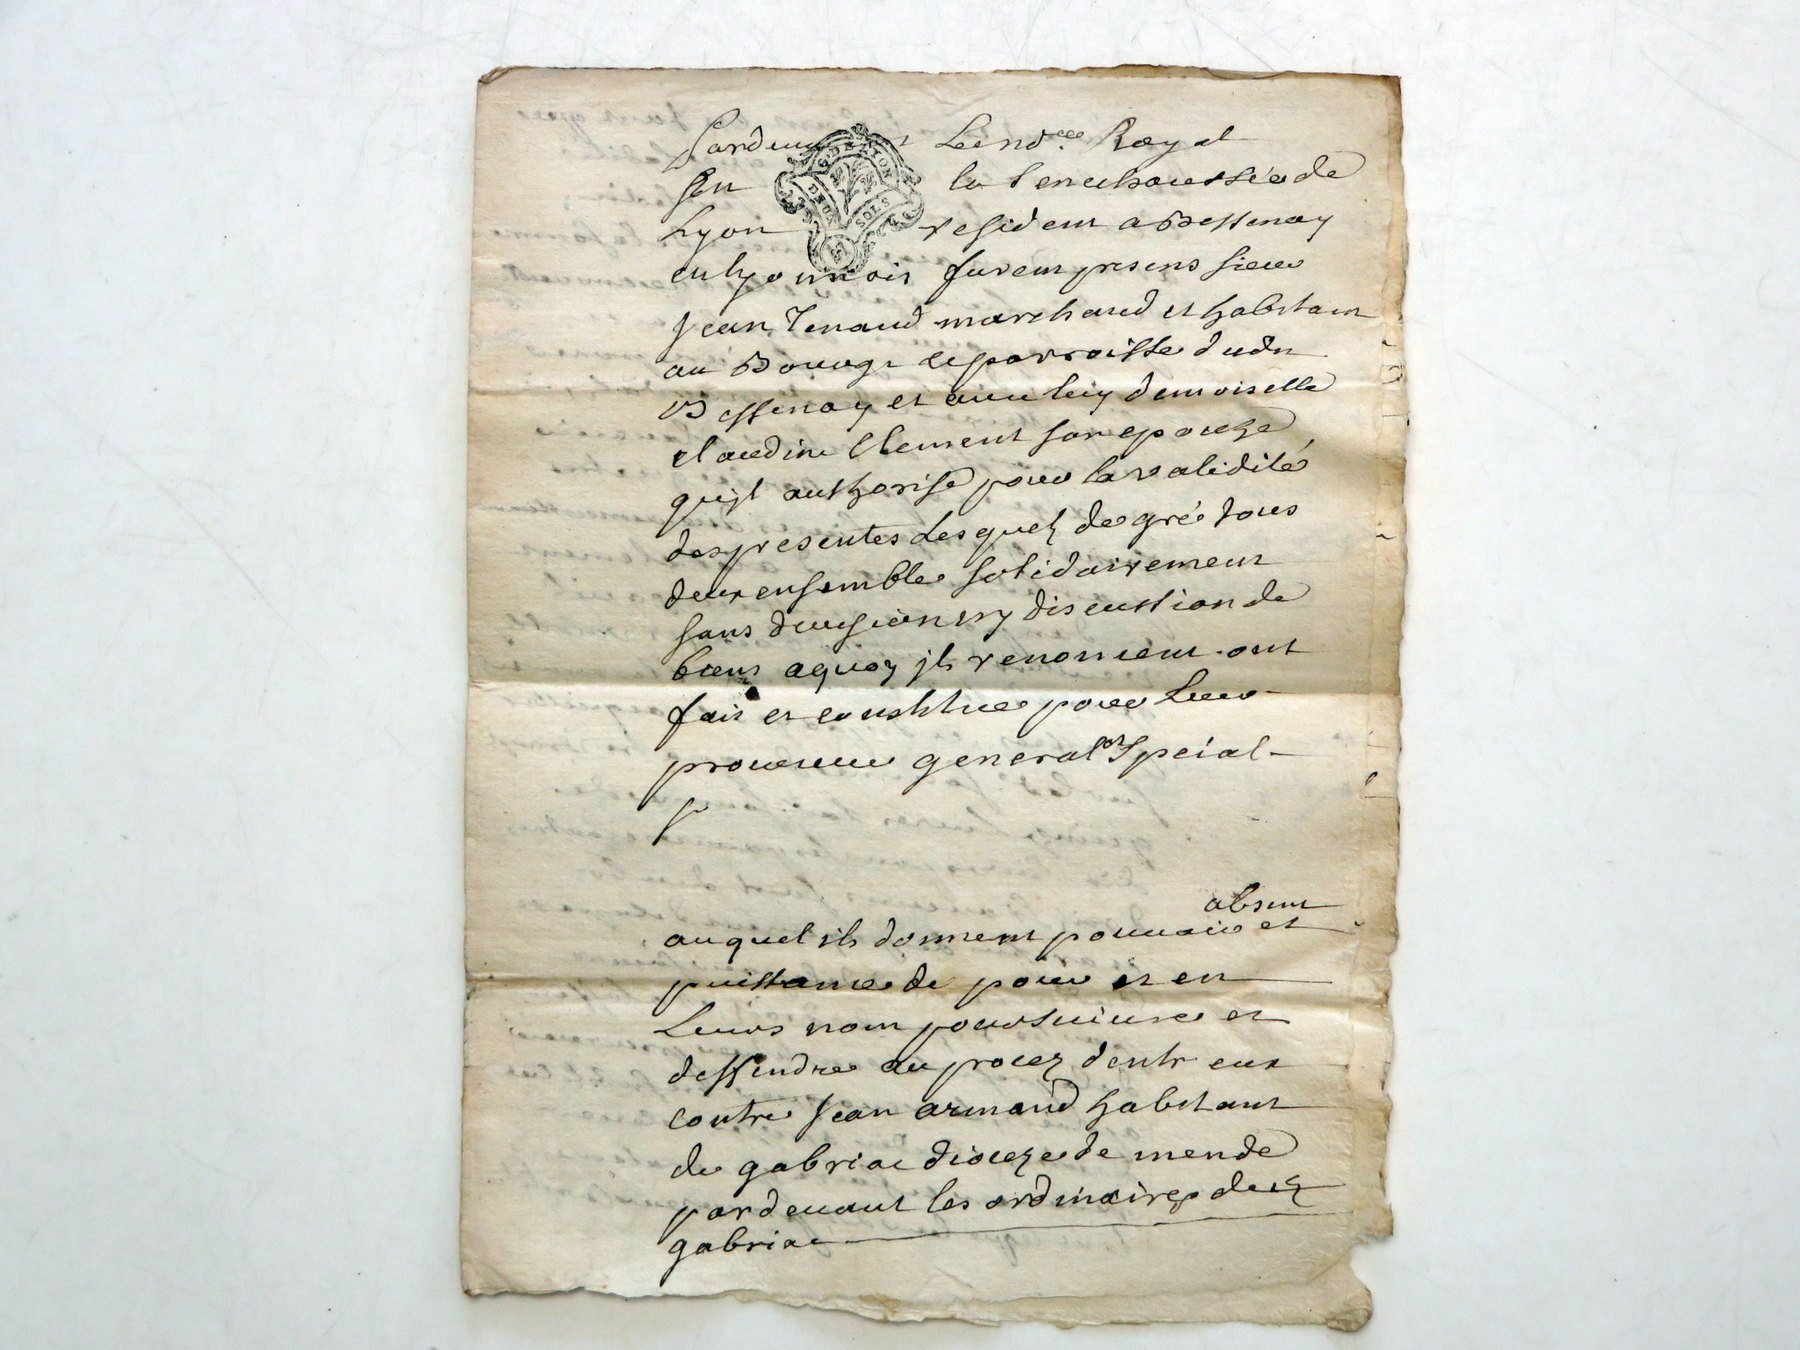 Pardevant Le no.re Royal
en la Senechaussée de
Lyon resident a Bessenay
en lyonnois furent presens sieur
Jean Tenaud marchand et habitant
au Bourg et parroisse dudit
Bessenay et avec luy demoiselle
claudine Clement son epouze
qu'jl authorise pour la validité
des presentes Lesquelz de gré tous
deux ensemble solidairement
sans division ny discustion de
biens aquoy jls renoncent ont
fait et constitué pour Leur
procureur general et Special
sr
absent
auquel ils donnent pouvoir et
puissance de pour et en
Leurs nom poursuivre et
deffendre au procez d'entr eux
contre Jean armand habitant
de gabriac dioceze de mende
pardevant les ordinaires de
gabriac
G. DE LYON
DEUX SOLS